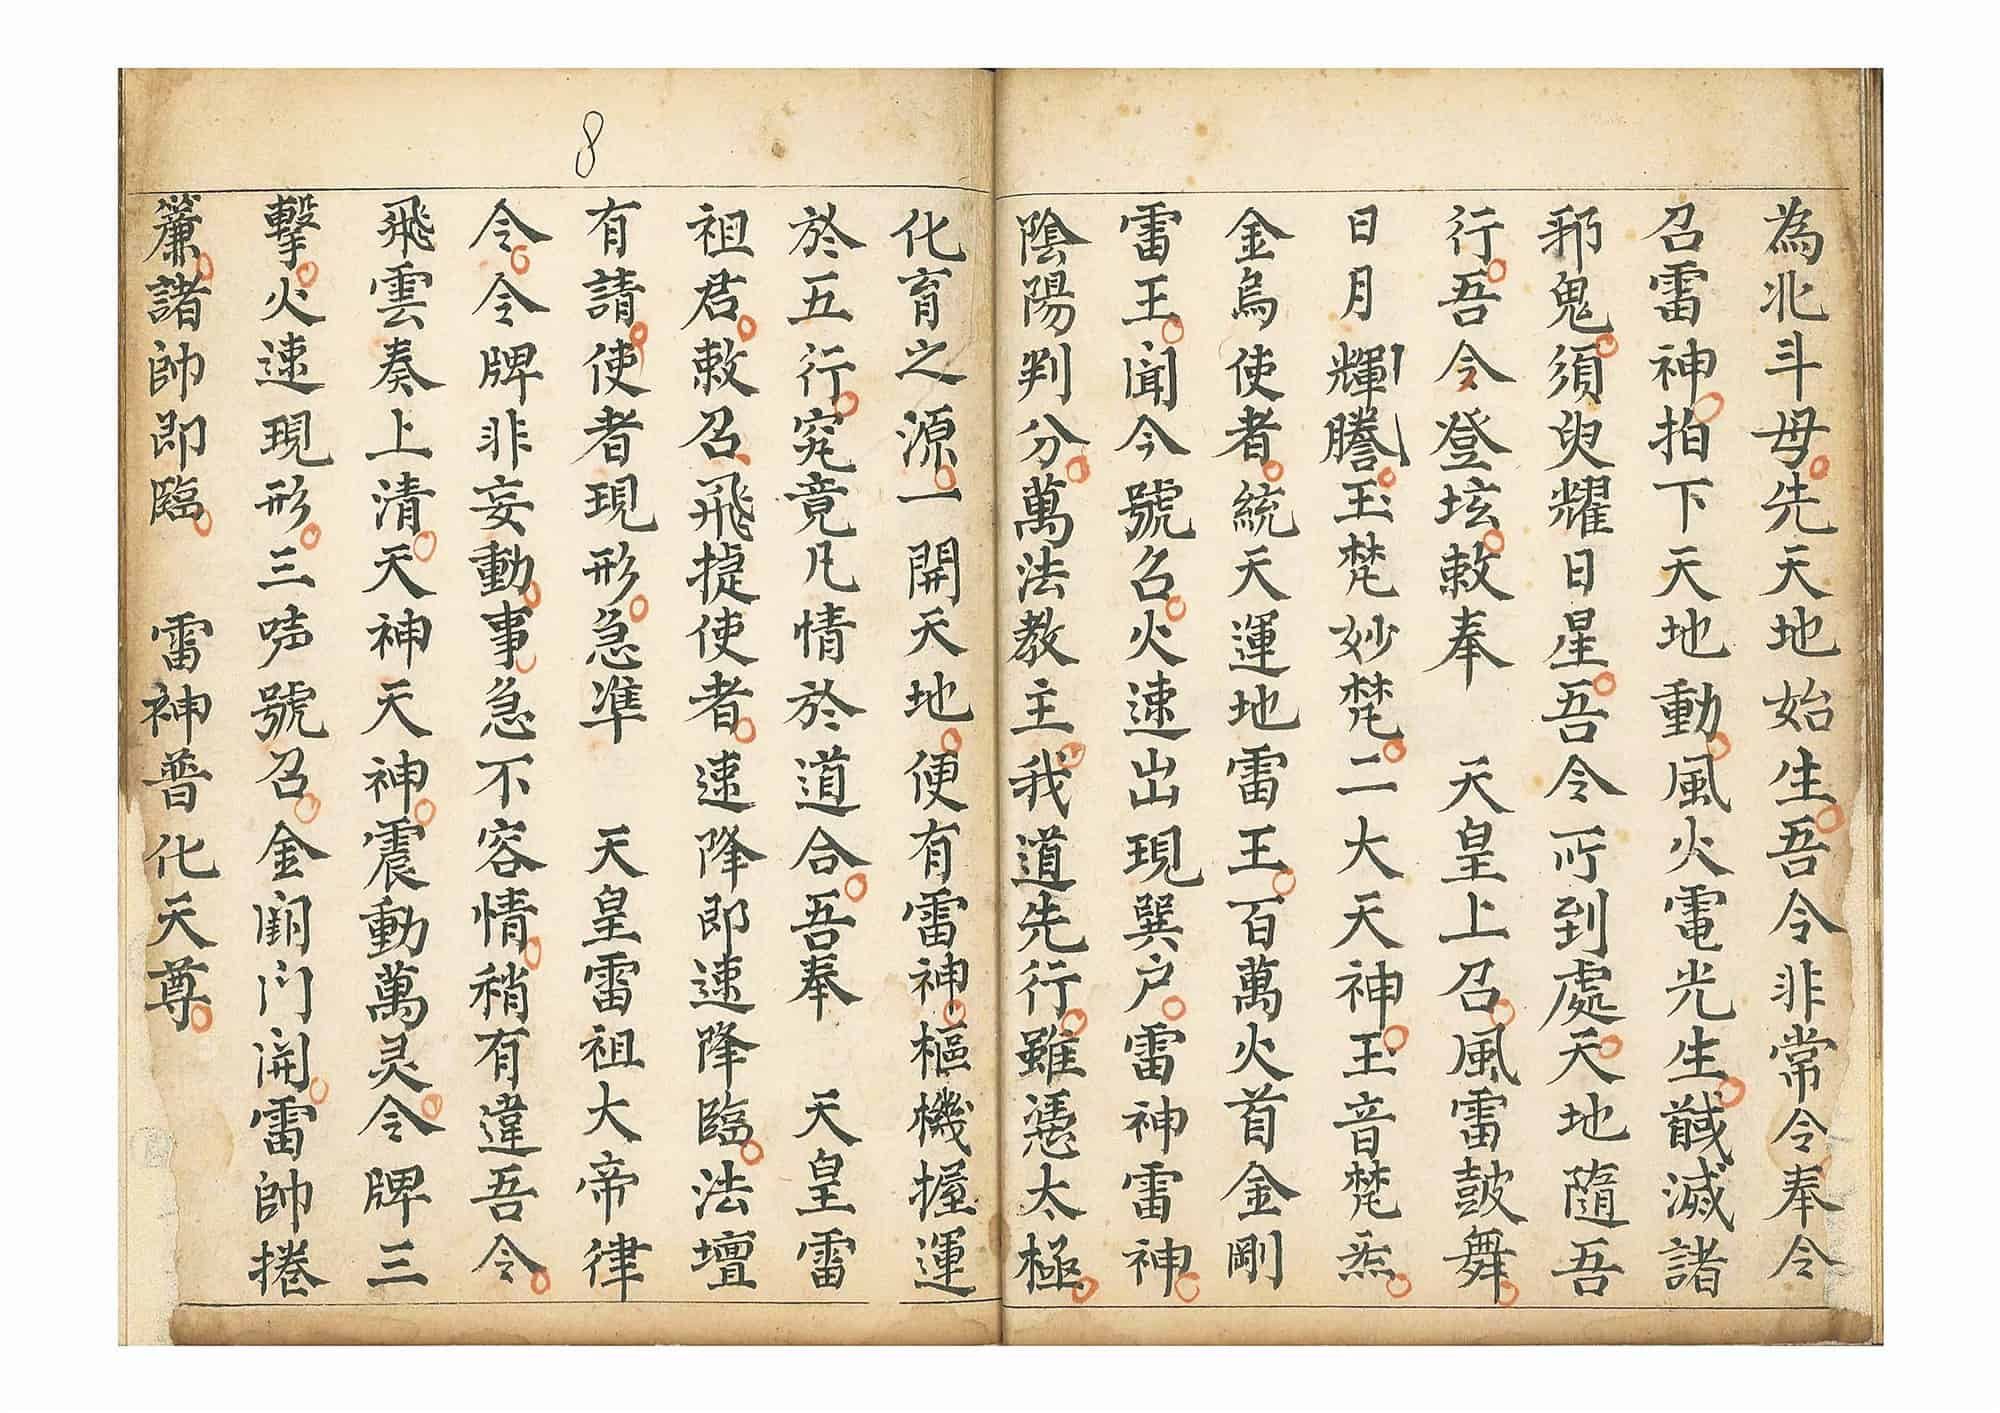 為北斗母先天地始生吾令非常令奉令
召雷神拍下天地動風火電光生馘滅諸
邪鬼須臾耀日星吾令所到處天地隨吾
行吾令登壇敕奉　天皇上召風雷鼓舞
日月輝騰玉梵妙梵二大天神玉音梵炁
金烏使者統天運地雷王百萬火首金剛
雷王聞今號召火速出現巽户雷神雷神
陰陽判分萬法教主我道先行雖憑太極
化育之源一開天地便有雷神樞機握運
於五行究竟凡情於道合吾奉　天皇雷
祖君敕召飛捷使者速降即速降臨法壇
有請使者現形急准　天皇雷祖大帝律
令令牌非妄動事急不容情稍有違吾令
飛雲奏上清天神天神震動萬灵令牌三
擊火速現形三声號召金闕门開雷帥捲
簾諸帥即臨　雷神普化天尊
8